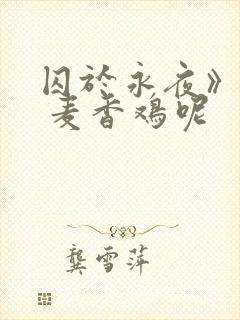 囚於永夜》
麦香鸡呢
龚雪萍